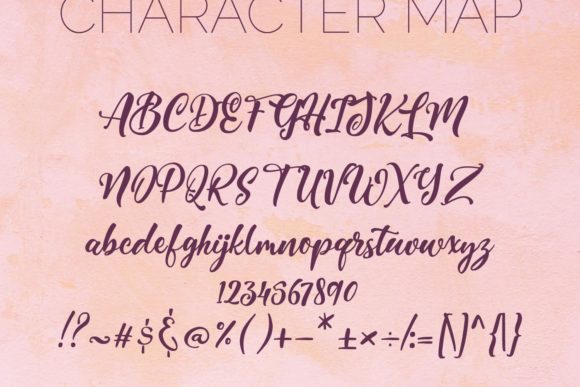 CHARACTER MAP
ABCDEFGHIJKLM
NOPQRSTUVWXYZ
abcdefghijklmnopqrstuvwxyz
1234567890
!?~#$&@%()+-*±×÷/:=[\]^{|}